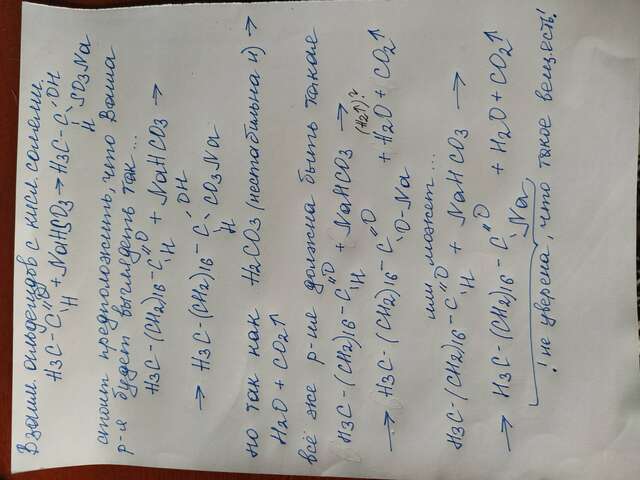 Взаим. альдегидов с кисл солями.
H3C-C=O H + NaHSO3 → H3C-C OH H SO3Na
стоит предположить, что Ваша
р-я будет выглядеть так...
H3C-(CH2)16-C=O H + NaHCO3 →
→ H3C-(CH2)16-C OH H CO3Na
но так как H2CO3 (нестабильна и) →
H2O + CO2↑
всё же р-ие должна быть такая
H3C-(CH2)16-C=O H + NaHCO3 → (H2↑)?
→ H3C-(CH2)16-C=O O-Na + H2O + CO2↑
или может...
H3C-(CH2)16-C=O H + NaHCO3 →
→ H3C-(CH2)16-C=O Na + H2O + CO2↑
! не уверена, что такое вещ. есть!